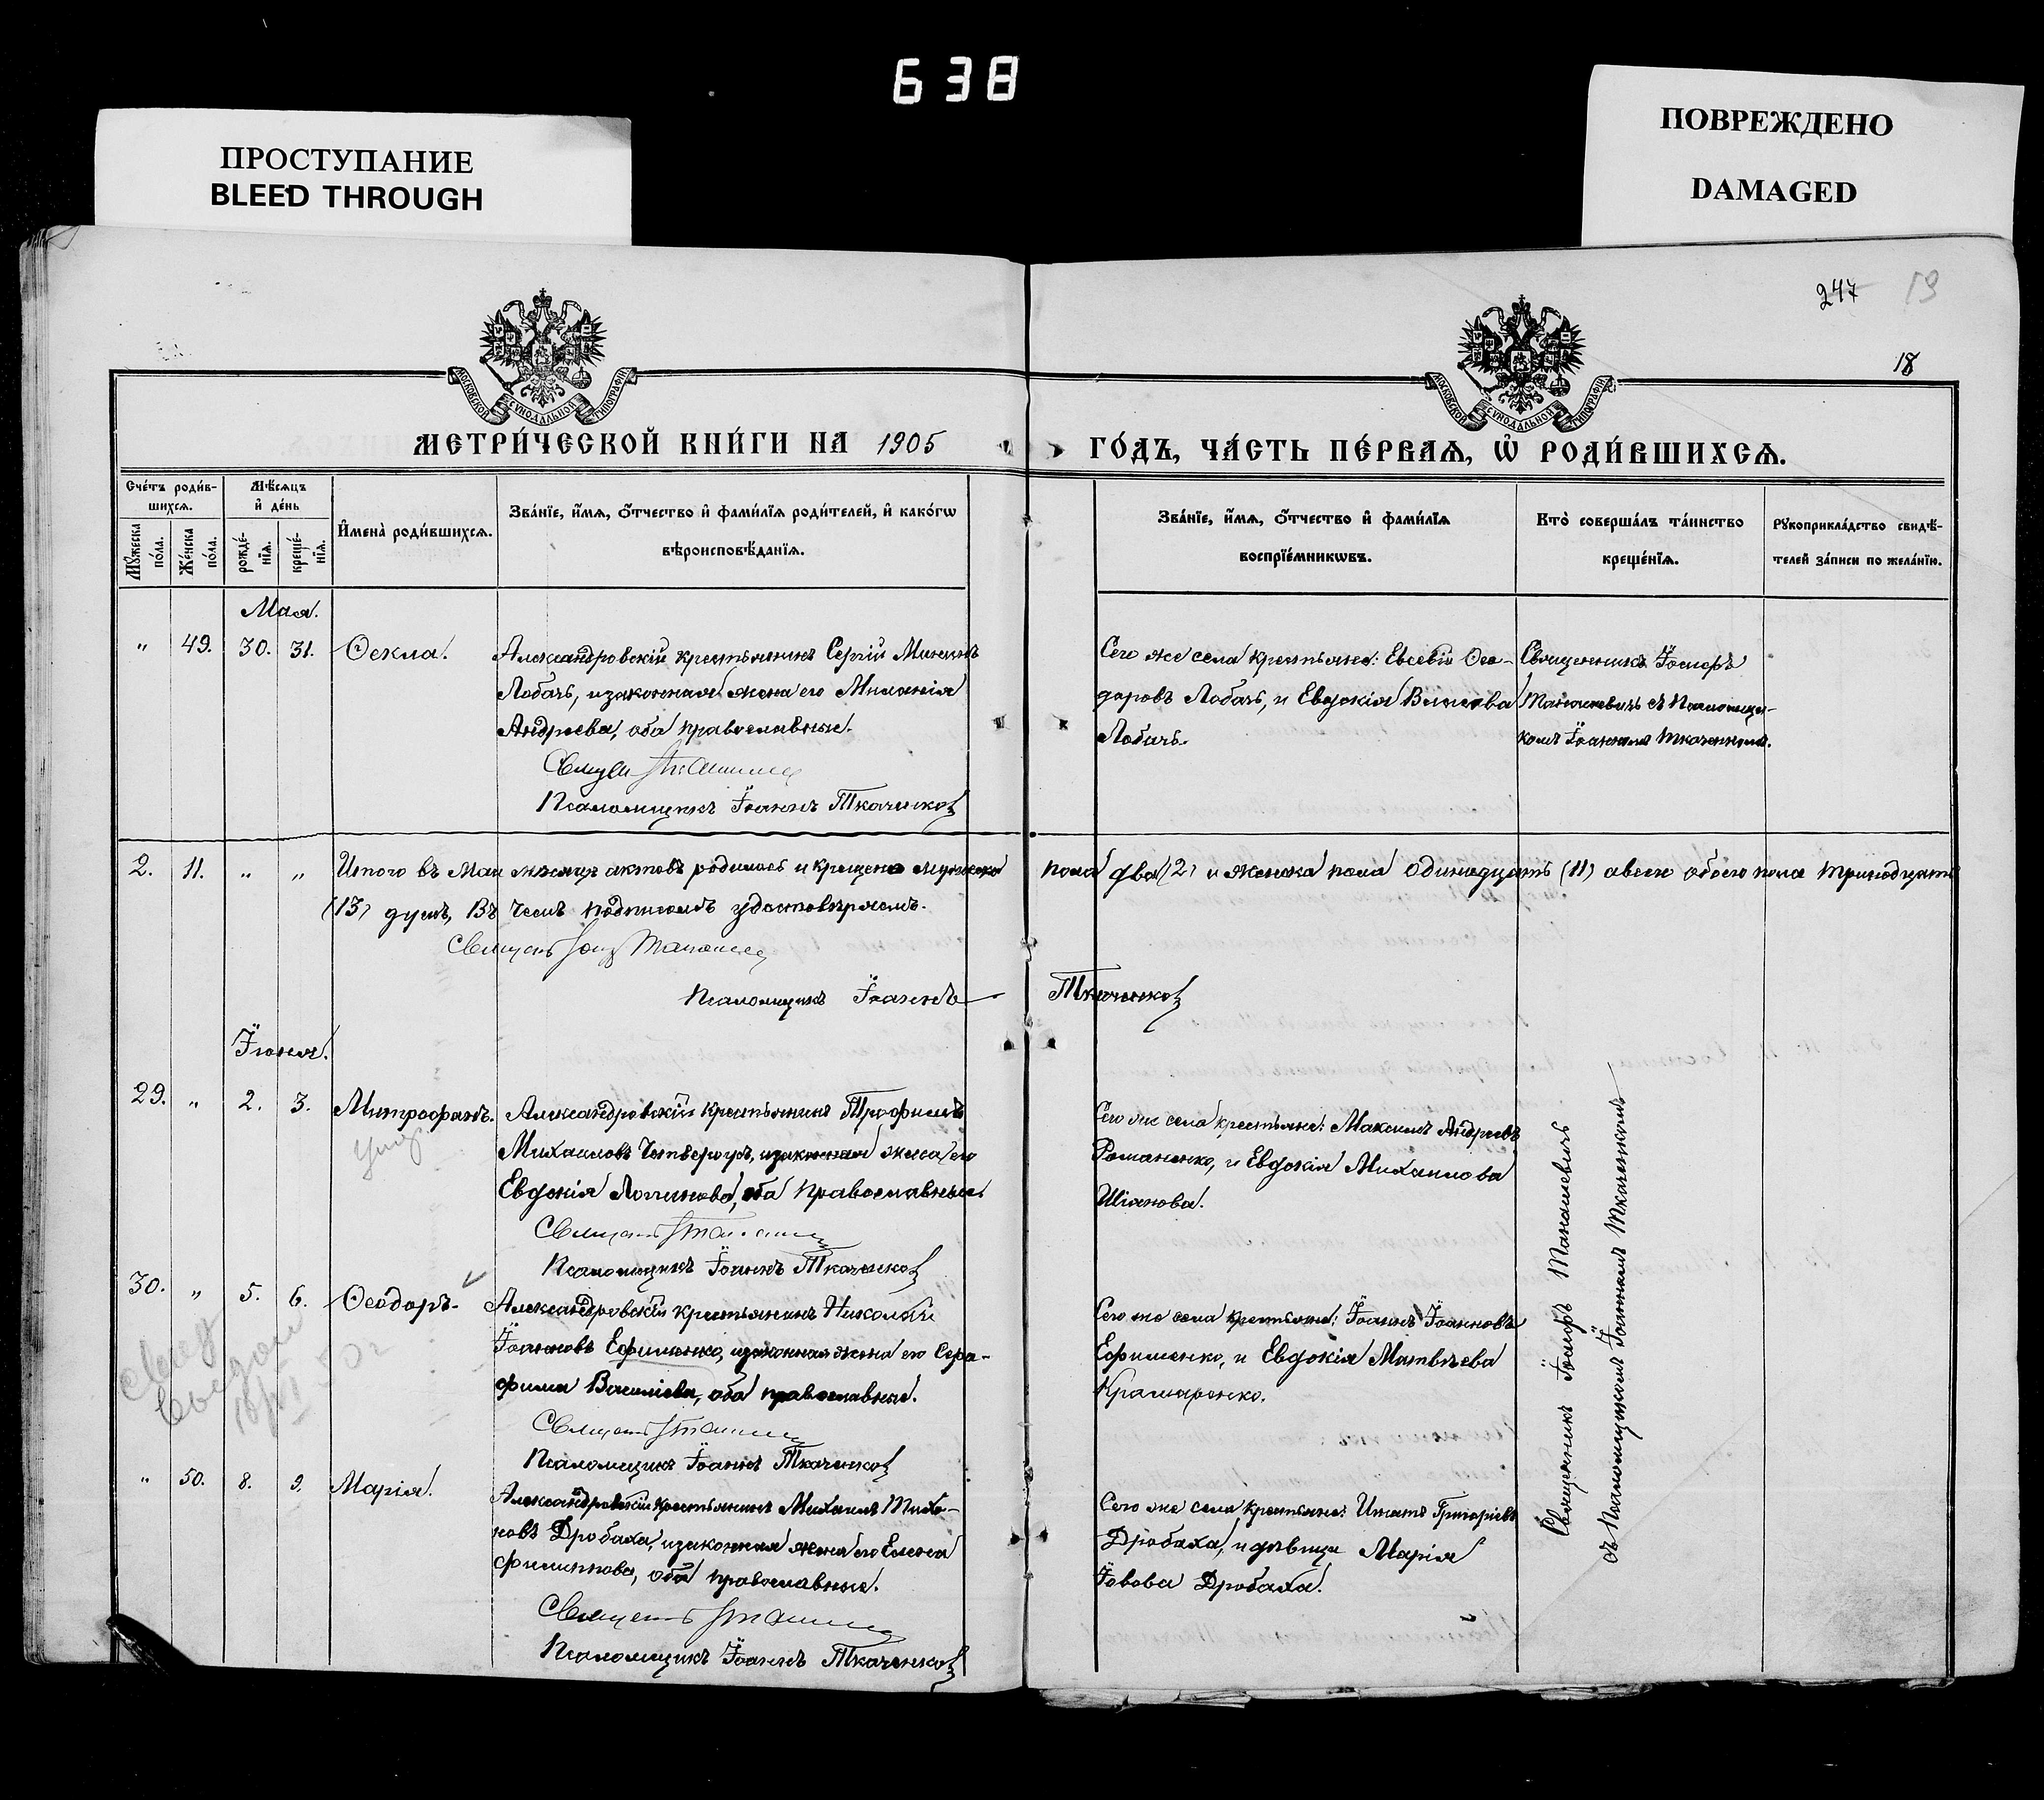 638
ПРОСТУПАНИЕ
BLEED THROUGH
ПОВРЕЖДЕНО
DAMAGED
247 19
18
МОСКОВСКОЙ СѴНОДАЛЬНОЙ ТИПОГРАФІИ
МОСКОВСКОЙ СѴНОДАЛЬНОЙ ТИПОГРАФІИ
МЕТРИ́ЧЕСКОЙ КНИ́ГИ НА 1905 ГО́ДЪ, ЧА́СТЬ ПЕ́РВАѦ, Ѿ РОДИ́ВШИХСѦ.
Сче́тъ роди́в-
шихсѧ.
Мꙋ́жеска
по́ла.
Же́нска
по́ла.
Мѣ́сѧцъ
и҆ де́нь
рожде́-
нїѧ.
креще́-
нїѧ.
И҆мена̀ роди́вшихсѧ.
Зва́нїе, и҆́мѧ, ѻ҆́тчество и҆ фами́лїѧ роди́телей, и҆ како́гѡ
вѣроисповѣ́данїѧ.
Зва́нїе, и҆́мѧ, ѻ҆́тчество и҆ фами́лїѧ
воспрїе́мникѡвъ.
Кто̀ соверша́лъ та́инство
креще́нїѧ.
Рꙋкоприкла́дство свидѣ́-
телей за́писи по жела́нїю.
Мая.
" 49. 30. 31. Ѳекла.
Александровскій крестьянинъ Сергій Мининъ
Лобачъ, и законная жена его Миланія
Андреева, оба православные.
Псаломщикъ Іоаннъ Ткаченко
Сего же села крестьяне: Евсевій Ѳео-
доровъ Лобачъ, и Евдокія
Лобачъ.
Священникъ Іосифъ
Манашевичъ съ Псаломщи-
комъ Іоанномъ Ткаченкомъ.
2. 11. " " Итого въ Маи мѣсяцѣ актовъ родилось и крещено мужеска пола два (2) и женска пола одинадцать (11) а всего обоего пола тринадцать
(13) душъ, Въ чемъ подписомъ удостовѣряемъ.
Псаломщикъ Іоаннъ Ткаченко
Іюня.
29. " 2. 3. Митрофанъ.
Александровскій крестьянинъ Трофимъ
Михаиловъ Четвергусъ, и законная жена его
Евдокія Логинова, оба православные.
Псаломщикъ Іоаннъ Ткаченко
Сего же села крестьяне: Максимъ Андреевъ
Романенко, и Евдокія Михаилова
Шіанова.
30. " 5. 6. Ѳеодоръ.
Александровскій крестьянинъ Николай
Іоанновъ Ефименко, и законная жена его Сера-
фима Василіева, оба православные.
Псаломщикъ Іоаннъ Ткаченко
Сего же села крестьяне: Іоаннъ Іоанновъ
Ефименко, и Евдокія Матвѣева
Крамаренко.
" 50. 8. 9. Марія.
Александровскій крестьянинъ Михаилъ Тихо-
новъ Дробаха, и законная жена его Елена
Филиппова, оба православные.
Псаломщикъ Іоаннъ Ткаченко
Сего же села крестьяне: Игнатъ Григоріевъ
Дробаха, и дѣвица Марія
Іовова Дробаха.
Священникъ Іосифъ Манашевичъ
съ Псаломщикомъ Іоанномъ Ткаченкомъ